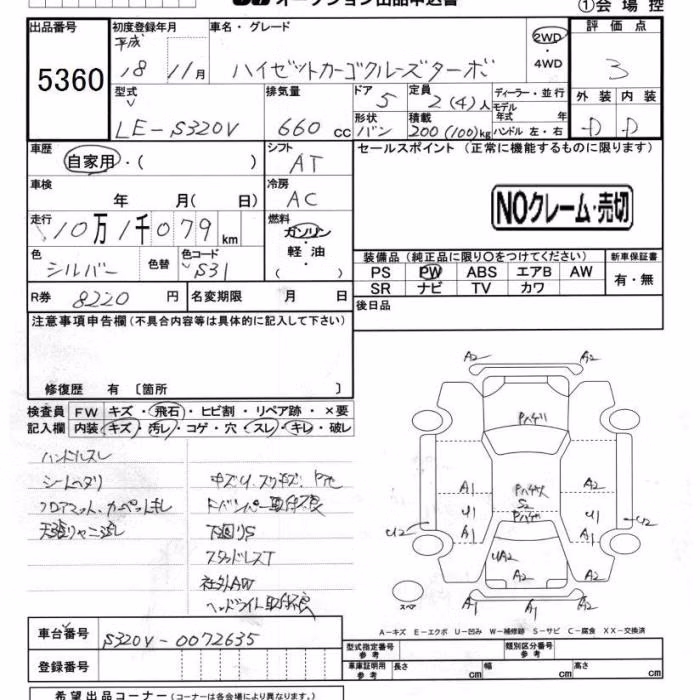 オークション出品申込書
①会場控
出品番号
5360
初度登録年月
平成
18 11月
車名・グレード
ハイゼットカーゴクルーズターボ
2WD
・
4WD
評価点
3
型式
LE-S320V
排気量
660 cc
ドア
5
定員
2(4)人
形状
バン
積載
200(100)kg
ディーラー・並行
モデル年式 年
ハンドル 左・右
外装
D
内装
D
車歴
自家用・( )
シフト
AT
セールスポイント(正常に機能するものに限ります)
車検
年 月( 日)
冷房
AC
NOクレーム・売切
走行
10万1千079 km
燃料
ガソリン
軽・油
( )
色
シルバー
色替
色コード
S31
装備品(純正品に限り〇をつけてください)
PS PW ABS エアB AW
SR ナビ TV カワ
新車保証書
有・無
R券 8220 円
名変期限 月 日
後日品
注意事項申告欄(不具合内容等は具体的に記入して下さい)
修復歴 有〔箇所 〕
検査員
記入欄
FW キズ・飛石・ヒビ割・リペア跡・×要
内装 キズ・汚レ・コゲ・穴・スレ・キレ・破レ
ハンドルスレ
シートヘタリ
フロアマット、カーペットキレ
下回りS
スタッドレスT
社外AW
A2 A2
A2 A2
A1 A2
U1 S2 U1
A1 A1
U2 U2
UA2
A2 A2
A1 A1
スペア
A-キズ E-エクボ U-凹み W-補修跡 S-サビ C-腐食 XX-交換済
車台番号
S320V-0072635
登録番号
型式指定番号
参考
類別区分番号
参考
車庫証明用
参考
長さ cm
幅 cm
高さ cm
希望出品コーナー(コーナーは各会場により異なります。)